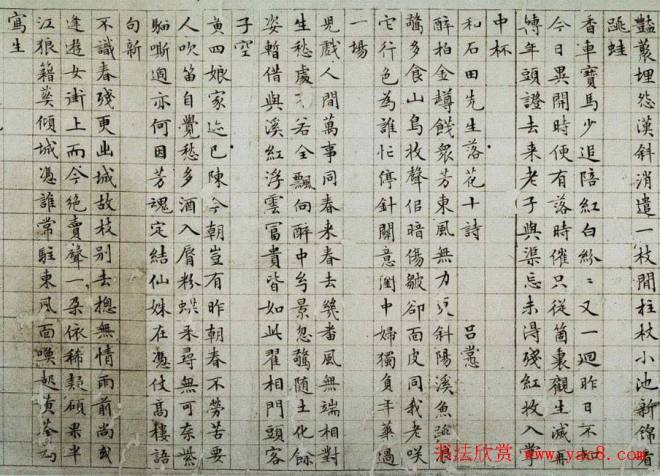 豔叢埋怨漢斜消遣一枝開柱杖小池新錦看
跳蛙
香車寶馬少追陪紅白紛〻又一迴昨日不
今日異開時便有落時催只從箇裏觀生滅再
轉年頭證去来老子與渠忘未得殘紅收入掌
中杯
和石田先生落花十詩 吕㦂
醉拍金樽餞衆芳東風無力只斜陽溪魚跳
驚多食山鳥收聲佀暗傷皺卻面皮同我老咲
它行色為誰忙停針閒意閨中婦獨負年華過
一場
兒戲人間萬事同春来春去幾番風無端相對
生愁處若全飄向醉中兮景忽驚随土化餘
姿暫借與溪紅浮雲冨貴皆如此翟相門頭客
子空
黄四娘家迹已陳今朝豈有昨朝春不勞苦要
人吹笛自覺愁多酒入脣粉蜈来尋無可奈紫
騮嘶過亦何因芳魂定結仙姝在憑仗髙樓語
句新
不識春殘更出城故枝別去摠無情雨前尚或
逢遊女街上而今絶賣聲一朶依稀類碩果半
江狼籍葬傾城憑誰常駐東風面喚起真
寫生
书法欣赏
www.yac8.com